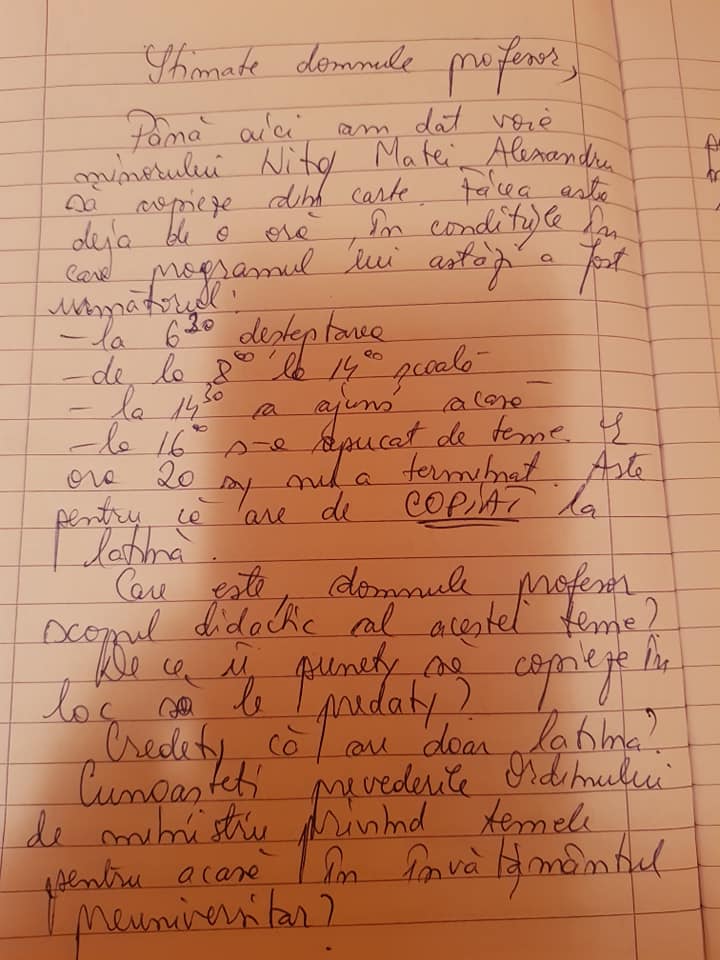 Stimate domnule profesor,
Până aici am dat voie
minorului Niță Matei Alexandru
să copieze din carte. Făcea asta
deja de o oră, în condițiile în
care programul lui astăzi a fost
următorul:
- la 6³⁰ deșteptarea
- de la 8⁰⁰ la 14⁰⁰ școală
- la 14³⁰ a ajuns acasă
- la 16⁰⁰ s-a apucat de teme. E
ora 20 și nu a terminat. Asta
pentru că are de COPIAT la
latină.
Care este, domnule profesor
scopul didactic al acestei teme?
De ce îi puneți să copieze în
loc să le predați?
Credeți că au doar latină?
Cunoașteți prevederile Ordinului
de ministru privind temele
pentru acasă în învățământul
preuniversitar?